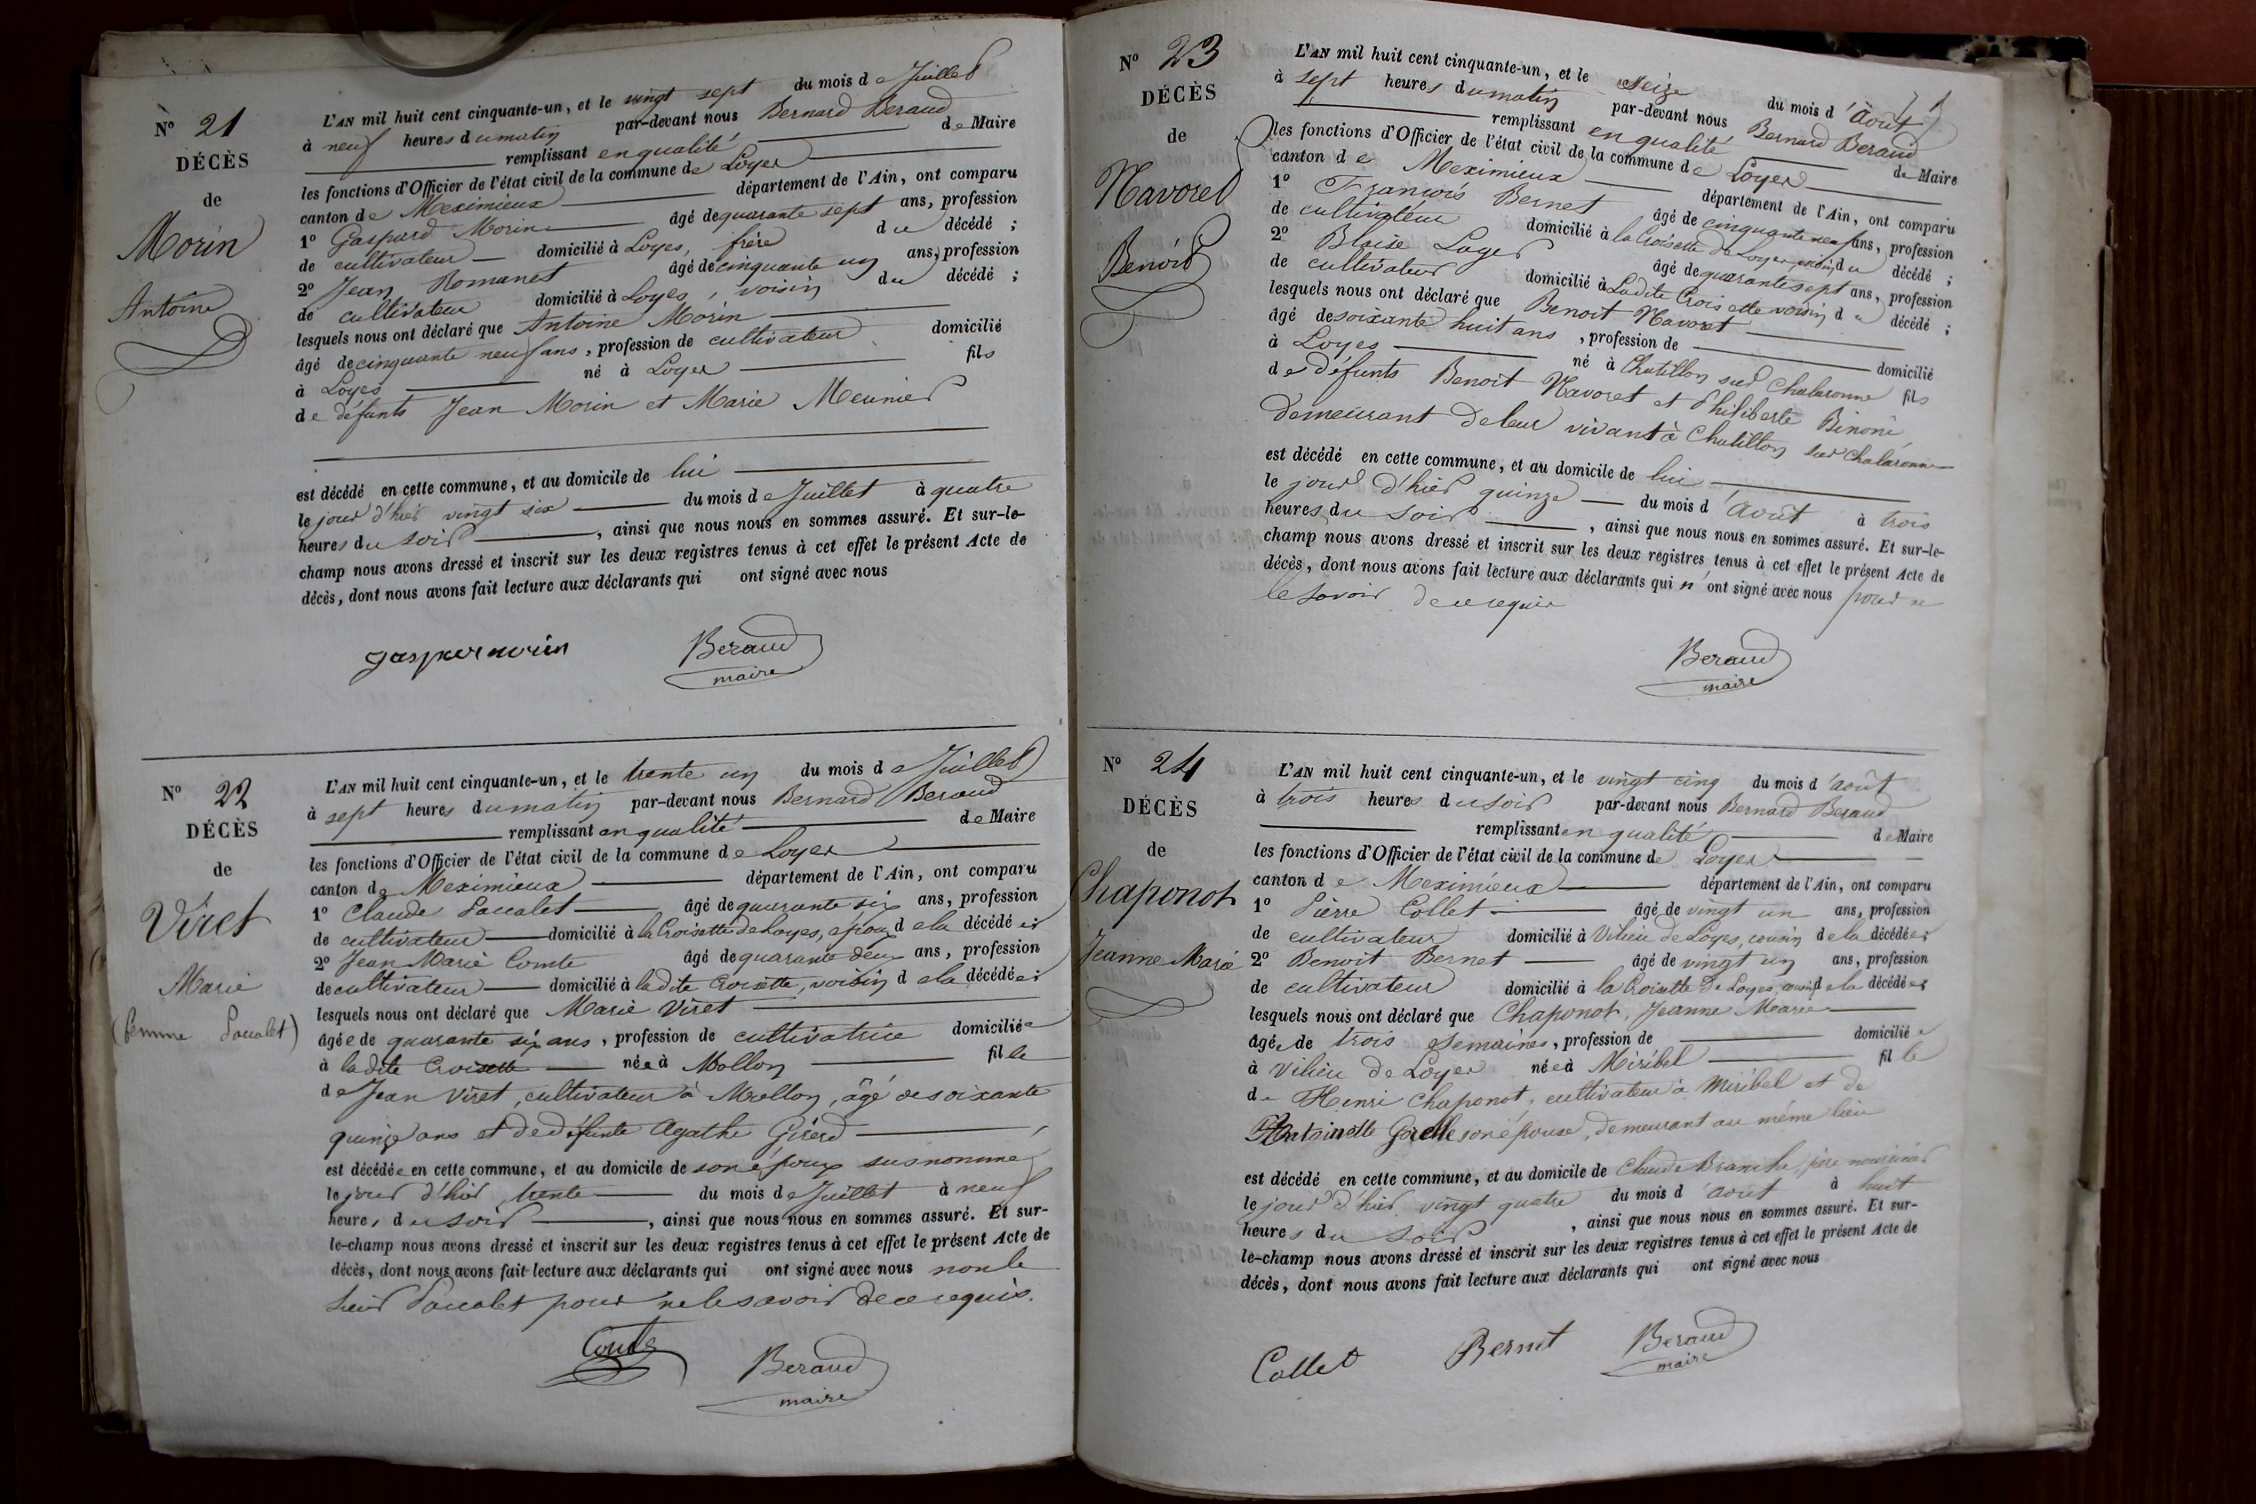 N° 21
DÉCÈS
de
Morin
Antoine
L'AN mil huit cent cinquante-un, et le vingt sept du mois de Juillet
à neuf heures du matin par-devant nous Bernard Beraud
remplissant en qualité de Maire
les fonctions d'Officier de l'état civil de la commune de Loyes
canton de Meximieux département de l'Ain, ont comparu
1° Gaspard Morin âgé de quarante sept ans, profession
de cultivateur domicilié à Loyes, frère du décédé ;
2° Jean Romanet âgé de cinquante un ans, profession
de cultivateur domicilié à Loyes, voisin du décédé ;
lesquels nous ont déclaré que Antoine Morin
âgé de cinquante neuf ans, profession de cultivateur domicilié
à Loyes né à Loyes fils
de défunts Jean Morin et Marie Meunier
est décédé en cette commune, et au domicile de lui
le jour d'hier vingt six du mois de Juillet à quatre
heures du soir, ainsi que nous nous en sommes assuré. Et sur-le-
champ nous avons dressé et inscrit sur les deux registres tenus à cet effet le présent Acte de
décès, dont nous avons fait lecture aux déclarants qui ont signé avec nous
gaspar morin Beraud
maire
N° 22
DÉCÈS
de
Viret
Marie
(femme Paccalet)
L'AN mil huit cent cinquante-un, et le trente un du mois de Juillet
à sept heures du matin par-devant nous Bernard Beraud
remplissant en qualité de Maire
les fonctions d'Officier de l'état civil de la commune de Loyes
canton de Meximieux département de l'Ain, ont comparu
1° Claude Paccalet âgé de quarante six ans, profession
de cultivateur domicilié à la Croisette de Loyes, époux de la décédée ;
2° Jean Marie Comte âgé de quarante deux ans, profession
de cultivateur domicilié à ladite Croisette, voisin de la décédée ;
lesquels nous ont déclaré que Marie Viret
âgée de quarante six ans, profession de cultivatrice domiciliée
à ladite Croisette née à Mollon fille
de Jean Viret, cultivateur à Mollon, âgé de soixante
quinze ans et de défunte Agathe Girerd
est décédée en cette commune, et au domicile de son époux susnommé
le jour d'hier, trente du mois de Juillet à neuf
heures du soir, ainsi que nous nous en sommes assuré. Et sur-
le-champ nous avons dressé et inscrit sur les deux registres tenus à cet effet le présent Acte de
décès, dont nous avons fait lecture aux déclarants qui ont signé avec nous non le
sieur Paccalet pour ne le savoir de ce requis.
Comte Beraud
maire
N° 23
DÉCÈS
de
Navoret
Benoit
L'AN mil huit cent cinquante-un, et le seize du mois d'Août
à sept heures du matin par-devant nous Bernard Beraud
remplissant en qualité de Maire
les fonctions d'Officier de l'état civil de la commune de Loyes
canton de Meximieux département de l'Ain, ont comparu
1° François Bernet âgé de cinquante neuf ans, profession
de cultivateur domicilié à la Croisette de Loyes, voisin du décédé ;
2° Blaise Loger âgé de quarante sept ans, profession
de cultivateur domicilié à Ladite Croisette voisin du décédé ;
lesquels nous ont déclaré que Benoit Navoret
âgé de soixante huit ans, profession de domicilié
à Loyes né à Chatillon sur Chalaronne fils
de défunts Benoit Navoret et Philiberte Binoni
demeurant de leur vivant à Chatillon sur Chalaronne
est décédé en cette commune, et au domicile de lui
le jour d'hier quinze du mois d'août à trois
heures du soir, ainsi que nous nous en sommes assuré. Et sur-le-
champ nous avons dressé et inscrit sur les deux registres tenus à cet effet le présent Acte de
décès, dont nous avons fait lecture aux déclarants qui n'ont signé avec nous pour ne
le savoir de ce requis
Beraud
maire
N° 24
DÉCÈS
de
Chaponot
Jeanne Marie
L'AN mil huit cent cinquante-un, et le vingt cinq du mois d'août
à trois heures du soir par-devant nous Bernard Beraud
remplissant en qualité de Maire
les fonctions d'Officier de l'état civil de la commune de Loyes
canton de Meximieux département de l'Ain, ont comparu
1° Pierre Collet âgé de vingt un ans, profession
de cultivateur domicilié à Vilieu de Loyes, cousin de la décédée ;
2° Benoit Bernet âgé de vingt un ans, profession
de cultivateur domicilié à la Croisette de Loyes, cousin de la décédée ;
lesquels nous ont déclaré que Chaponot, Jeanne Marie
âgée de trois semaines, profession de domiciliée
à Vilieu de Loyes née à Miribel fille
de Henri Chaponot, cultivateur à Miribel et de
Antoinette son épouse, demeurant au même lieu
est décédé en cette commune, et au domicile de Claude Branche, père nourricier
le jour d'hier, vingt quatre du mois d'août à huit
heures du soir, ainsi que nous nous en sommes assuré. Et sur-
le-champ nous avons dressé et inscrit sur les deux registres tenus à cet effet le présent Acte de
décès, dont nous avons fait lecture aux déclarants qui ont signé avec nous
Collet Bernet Beraud
maire